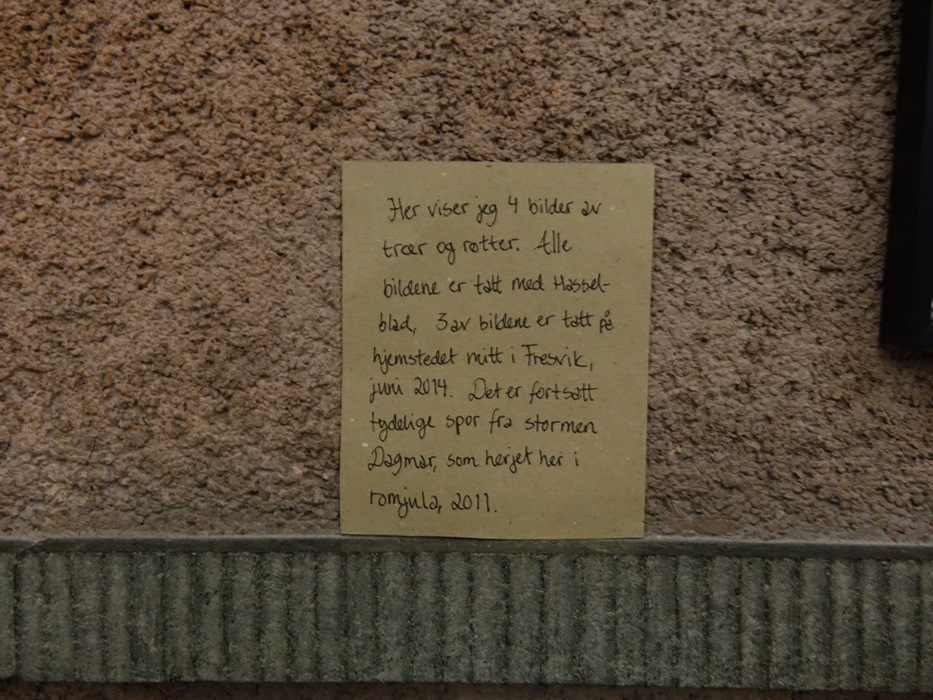 Her viser jeg 4 bilder av
trær og røtter. Alle
bildene er tatt med Hassel-
blad, 3 av bildene er tatt på
hjemstedet mitt i Fresvik,
juni 2014. Det er fortsatt
tydelige spor fra stormen
Dagmar, som herjet her i
romjula, 2011.